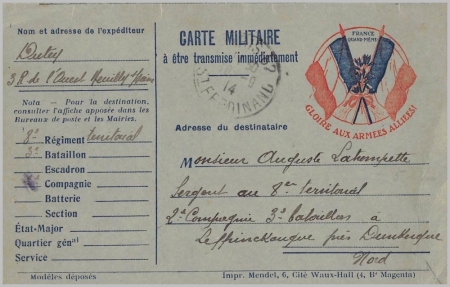 Nom et adresse de l'expéditeur
3 R de l'Ouest Neuilly
Nota — Pour la destination,
consulter l'affiche apposée dans les
Bureaux de poste et les Mairies.
8e Régiment territorial
3e Bataillon
Escadron
Compagnie
Batterie
Section
État-Major
Quartier génal
Service
Modèles déposés
CARTE MILITAIRE
à être transmise immédiatement
14
FERDINAND
FRANCE
QUAND-MÊME
GLOIRE AUX ARMÉES ALLIÉES!
Adresse du destinataire
Monsieur Auguste Lahempette
Sergent au 8me territorial
2e Compagnie 3e bataillon à
Leffrinckouque près Dunkerque
Nord
Impr. Mendel, 6, Cité Waux-Hall (4, Bd Magenta)